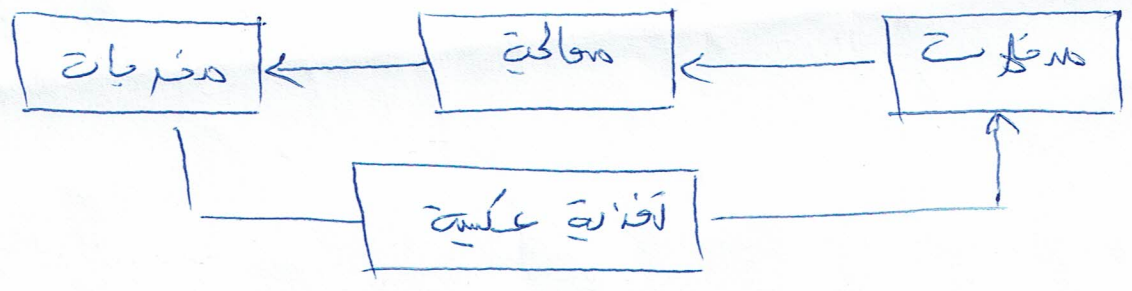 مدخلات
معالجة
مخرجات
تغذية عكسية